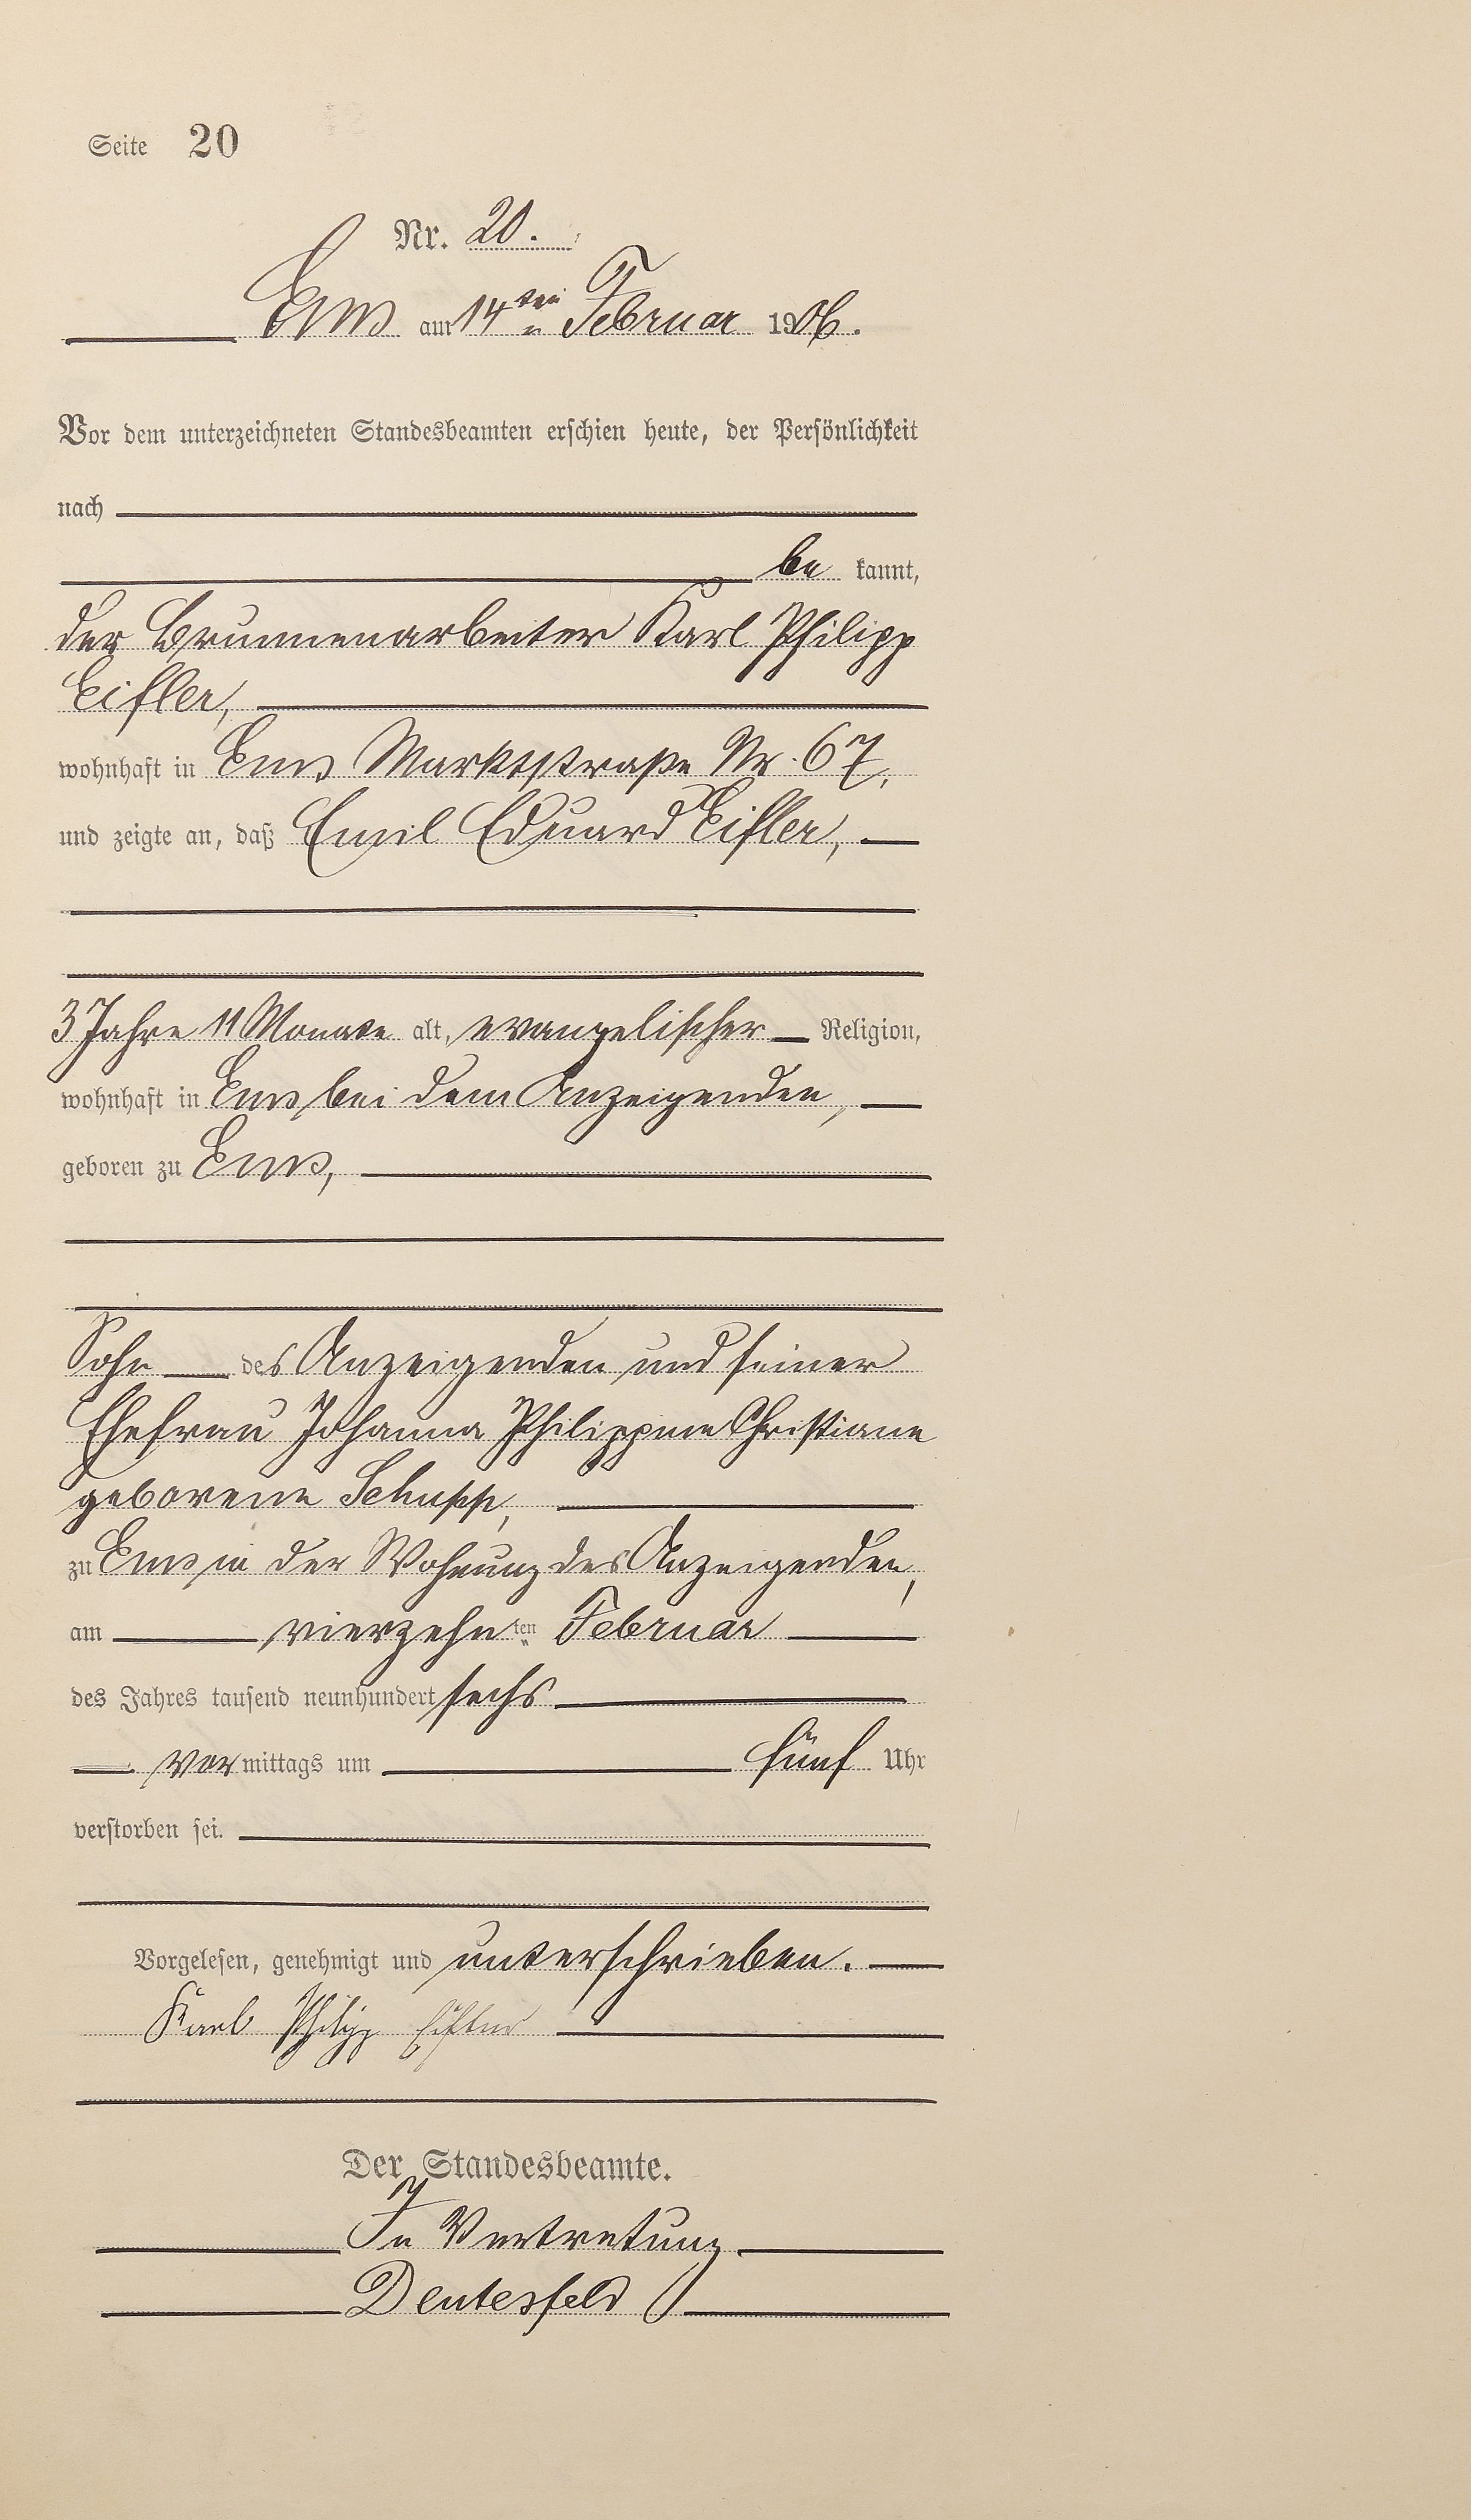 Seite 20
Nr. 20.
Ems am 14ten Februar 1906.
Vor dem unterzeichneten Standesbeamten erschien heute, der Persönlichkeit
nach
be kannt,
der Brunnenarbeiter Karl Philipp
Eifler,
wohnhaft in Ems Marktstraße Nr. 67,
und zeigte an, daß Emil Eduard Eifler,
3 Jahre 11 Monate alt, evangelischer Religion,
wohnhaft in Ems bei dem Anzeigenden,
geboren zu Ems,
Sohn des Anzeigenden und seiner
Ehefrau Johanna Philippine Christiane
geborene Schupp,
zu Ems in der Wohnung des Anzeigenden,
am vierzehnten Februar
des Jahres tausend neunhundert sechs
vor mittags um fünf Uhr
verstorben sei.
Vorgelesen, genehmigt und unterschrieben.
Karl Philipp Eifler
Der Standesbeamte.
In Vertretung
Deutesfeld